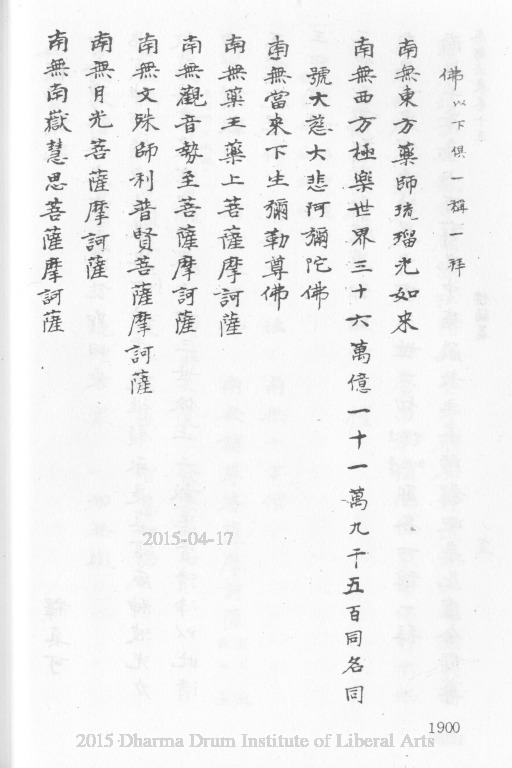 佛以下俱一稱一拜
南無東方藥師琉璃光如來
南無西方極樂世界三十六萬億一十一萬九千五百同名同
號大慈大悲阿彌陀佛
南無當來下生彌勒尊佛
南無藥王藥上菩薩摩訶薩
南無觀音勢至菩薩摩訶薩
南無文殊師利普賢菩薩摩訶薩
南無月光菩薩摩訶薩
南無南嶽慧思菩薩摩訶薩
2015-04-17
1900
2015 Dharma Drum Institute of Liberal Arts